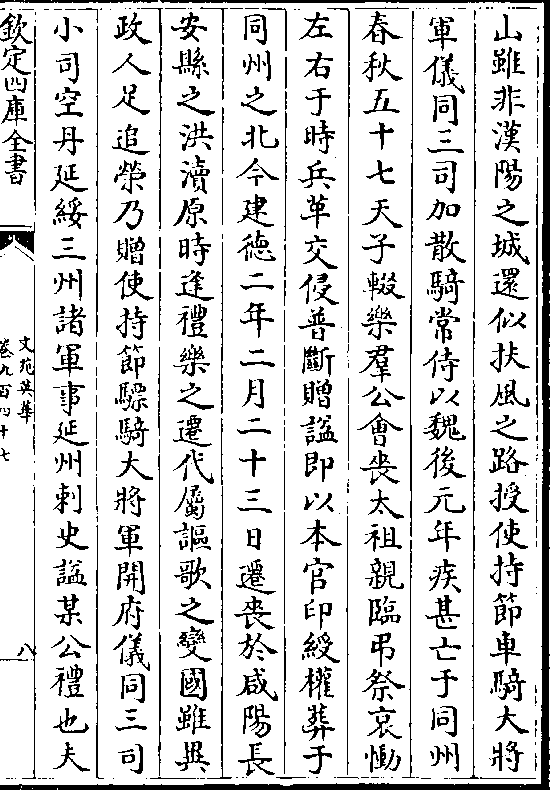 山雖非漢陽之城還似扶風之路授使持節車騎大將
軍儀同三司加散騎常侍以魏後元年疾甚亡于同州
春秋五十七天子輟樂羣公會丧太祖親臨弔祭哀慟
左右于時兵革交侵普斷贈諡即以本官印綬權葬于
同州之北今建德二年二月二十三日遷丧於咸陽長
安縣之洪瀆原時逢禮樂之遷代屬謳歌之變國雖異
政人足追榮乃贈使持節驃騎大將軍開府儀同三司
小司空丹延綏三州諸軍事延州刺史諡某公禮也夫
欽定四庫全書
文苑英華
卷九百四十七
八